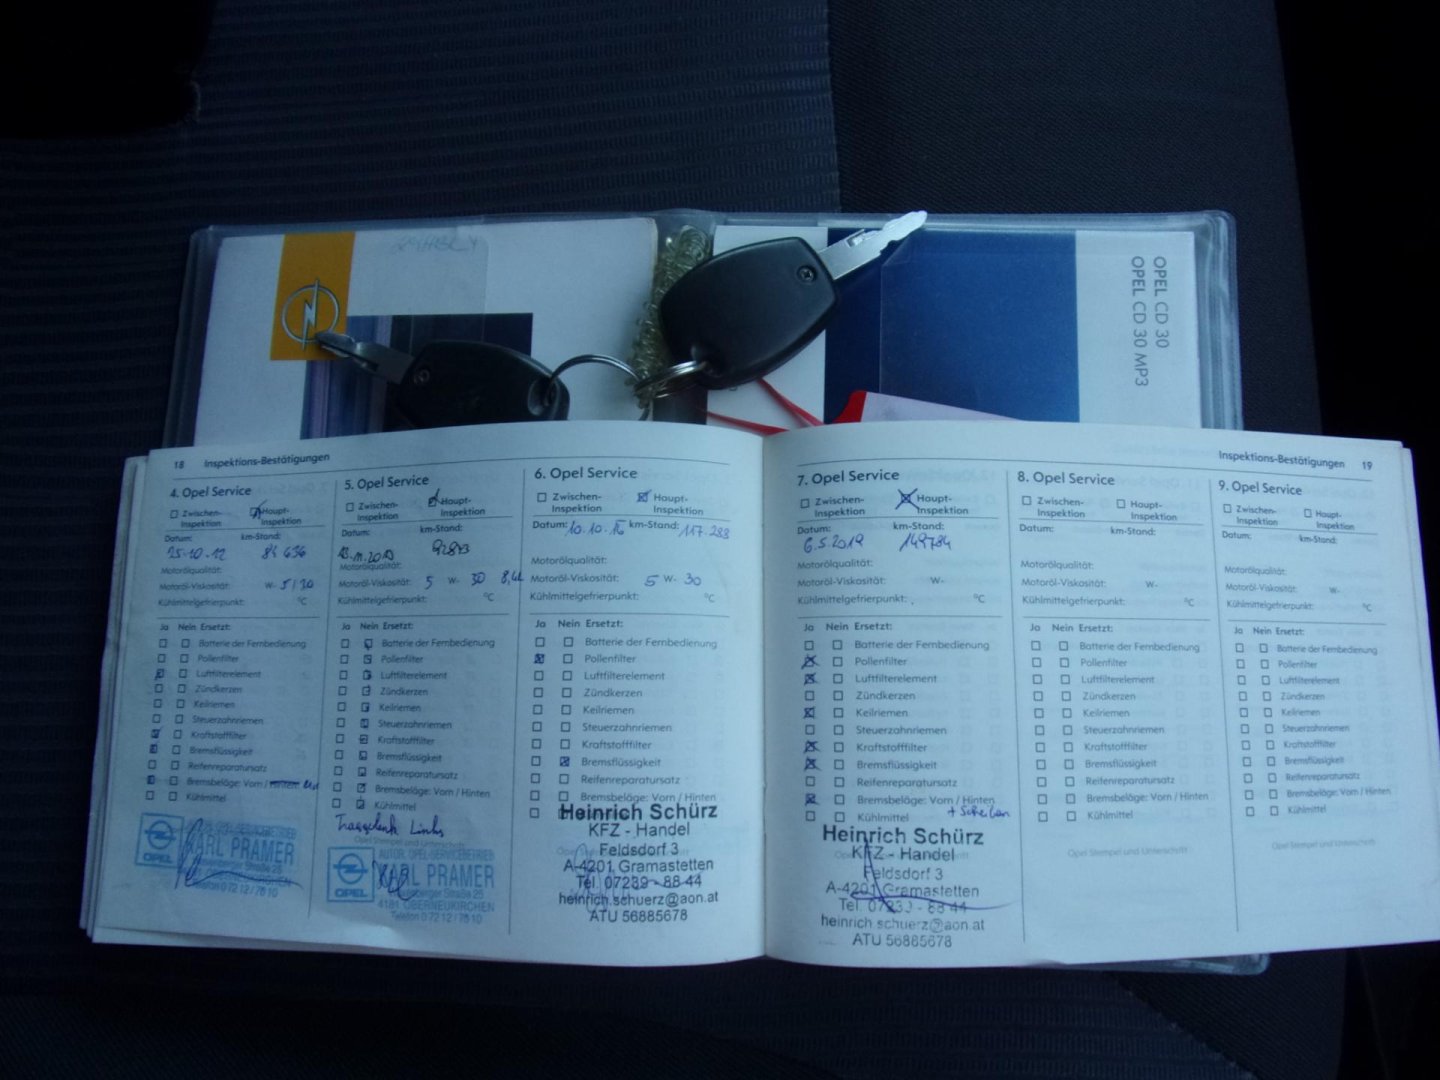 OPEL CD 30
OPEL CD 30 MP3
18 Inspektions-Bestätigungen
4. Opel Service
Zwischen-Inspektion
Haupt-Inspektion
Datum: km-Stand:
25.10.12 84 636
Motorölqualität:
Motoröl-Viskosität: W- 5/30
Kühlmittelgefrierpunkt: °C
Ja Nein Ersetzt:
Batterie der Fernbedienung
Pollenfilter
Luftfilterelement
Zündkerzen
Keilriemen
Steuerzahnriemen
Kraftstofffilter
Bremsflüssigkeit
Reifenreparatursatz
Bremsbeläge: Vorn / Hinten
Kühlmittel
OPEL
KARL PRAMER
5. Opel Service
Zwischen-Inspektion
Haupt-Inspektion
Datum: km-Stand:
Motorölqualität:
Motoröl-Viskosität: 5 W- 30
Kühlmittelgefrierpunkt: °C
Ja Nein Ersetzt:
Batterie der Fernbedienung
Pollenfilter
Luftfilterelement
Zündkerzen
Keilriemen
Steuerzahnriemen
Kraftstofffilter
Bremsflüssigkeit
Reifenreparatursatz
Bremsbeläge: Vorn / Hinten
Kühlmittel
Traggelenk Links
Opel Stempel und Unterschrift
OPEL
AUTOR. OPEL-SERVICEBETRIEB
KARL PRAMER
4181 OBERNEUKIRCHEN
Telefon 0 72 12 / 70 10
6. Opel Service
Zwischen-Inspektion
Haupt-Inspektion
Datum: 10.10. km-Stand: 117.288
Motorölqualität:
Motoröl-Viskosität: 5 W- 30
Kühlmittelgefrierpunkt: °C
Ja Nein Ersetzt:
Batterie der Fernbedienung
Pollenfilter
Luftfilterelement
Zündkerzen
Keilriemen
Steuerzahnriemen
Kraftstofffilter
Bremsflüssigkeit
Reifenreparatursatz
Heinrich Schürz
KFZ - Handel
Feldsdorf 3
A-4201 Gramastetten
Tel. 07239 - 88 44
heinrich.schuerz@aon.at
ATU 56885678
Inspektions-Bestätigungen 19
7. Opel Service
Zwischen-Inspektion
Haupt-Inspektion
Datum: km-Stand:
6.5.2019 149784
Motorölqualität:
Motoröl-Viskosität: W-
Kühlmittelgefrierpunkt: °C
Ja Nein Ersetzt:
Batterie der Fernbedienung
Pollenfilter
Luftfilterelement
Zündkerzen
Keilriemen
Steuerzahnriemen
Kraftstofffilter
Bremsflüssigkeit
Reifenreparatursatz
Bremsbeläge: Vorn / Hinten
Kühlmittel + Scheiben
Heinrich Schürz
KFZ - Handel
Feldsdorf 3
A-4201 Gramastetten
Tel. 07239 - 88 44
heinrich.schuerz@aon.at
ATU 56885678
8. Opel Service
Zwischen-Inspektion
Haupt-Inspektion
Datum: km-Stand:
Motorölqualität:
Motoröl-Viskosität: W-
Kühlmittelgefrierpunkt: °C
Ja Nein Ersetzt:
Batterie der Fernbedienung
Pollenfilter
Luftfilterelement
Zündkerzen
Keilriemen
Steuerzahnriemen
Kraftstofffilter
Bremsflüssigkeit
Reifenreparatursatz
Bremsbeläge: Vorn / Hinten
Kühlmittel
Opel Stempel und Unterschrift
9. Opel Service
Zwischen-Inspektion
Haupt-Inspektion
Datum: km-Stand:
Motorölqualität:
Motoröl-Viskosität: W-
Kühlmittelgefrierpunkt: °C
Ja Nein Ersetzt:
Batterie der Fernbedienung
Pollenfilter
Luftfilterelement
Zündkerzen
Keilriemen
Steuerzahnriemen
Kraftstofffilter
Bremsflüssigkeit
Reifenreparatursatz
Bremsbeläge: Vorn / Hinten
Kühlmittel
Opel Stempel und Unterschrift